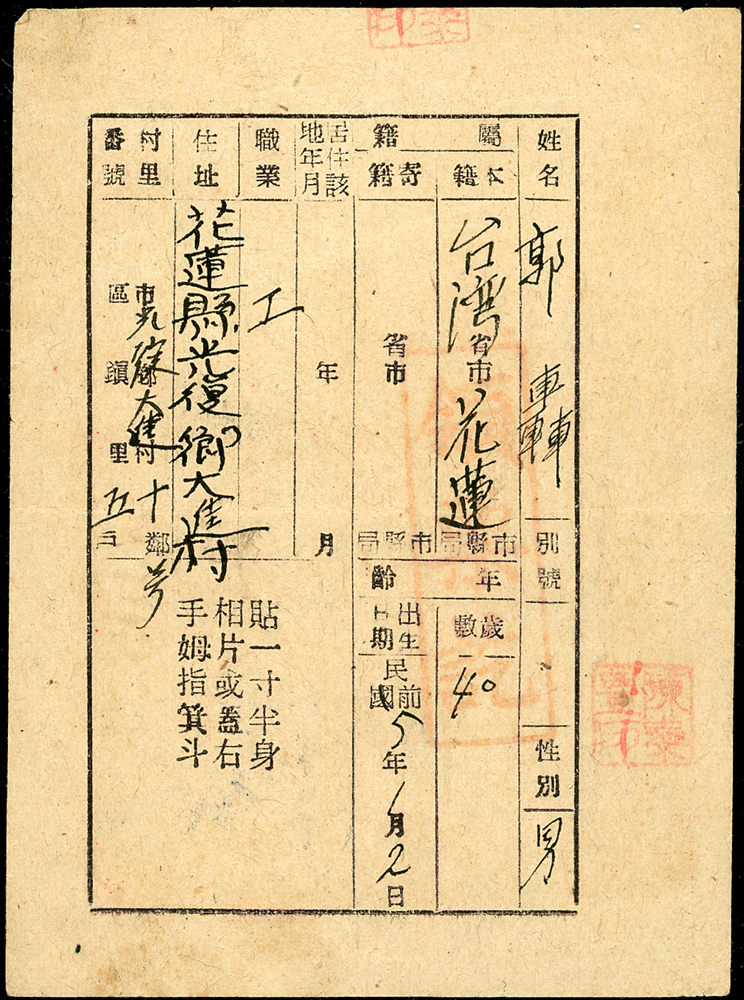 姓名 郭轟 別號 性別 男
屬籍
本籍 台湾省市花蓮市縣局
寄籍 省市 市縣局
年齡
歲數 40
出生日期 民前國5年1月2日
居住該地年月 年 月
職業 工
住址 花蓮縣光復鄉大進村
村里番號 市 區 鎮 大進村里 十鄰 五戶号
貼一寸半身
相片或蓋右
手姆指箕斗